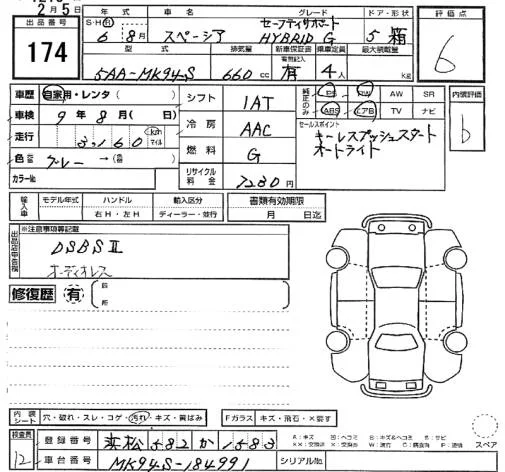 2月5日
出品番号 年式 車名 グレード ドア・形状 評価点
174
S・H・R 6年 8月 スペーシア セーフティサポート HYBRID G 5 箱 6
型式 排気量 新車保証書 乗車定員 最大積載量
5AA-MK94S 660 cc 有無記入 有 4人 kg
車歴 自家用・レンタ( )
車検 9年 8月( 日)
走行 3,160 km マイル
色 グレー → (色替)
カラー№
シフト 1AT
冷房 AAC
燃料 G
リサイクル料金 7280円
純正のみ PS PW AW SR
ABS エアB TV ナビ
内装評価 b
セールスポイント
キーレスプッシュスタート
オートライト
輸入車 モデル年式 ハンドル 輸入区分 書類有効期限
右H・左H ディーラー・並行 月 日迄
出品店申告欄 ※注意事項等記載
DSBSⅡ
オーディオレス
修復歴 有 箇所
内装シート 穴・破れ・スレ・コゲ・汚れ・キズ・黄ばみ Fガラス キズ・飛石・×要す
検査員 登録番号 浜松582か1583
12 車台番号 MK94S-184991 シリアル№
スペア